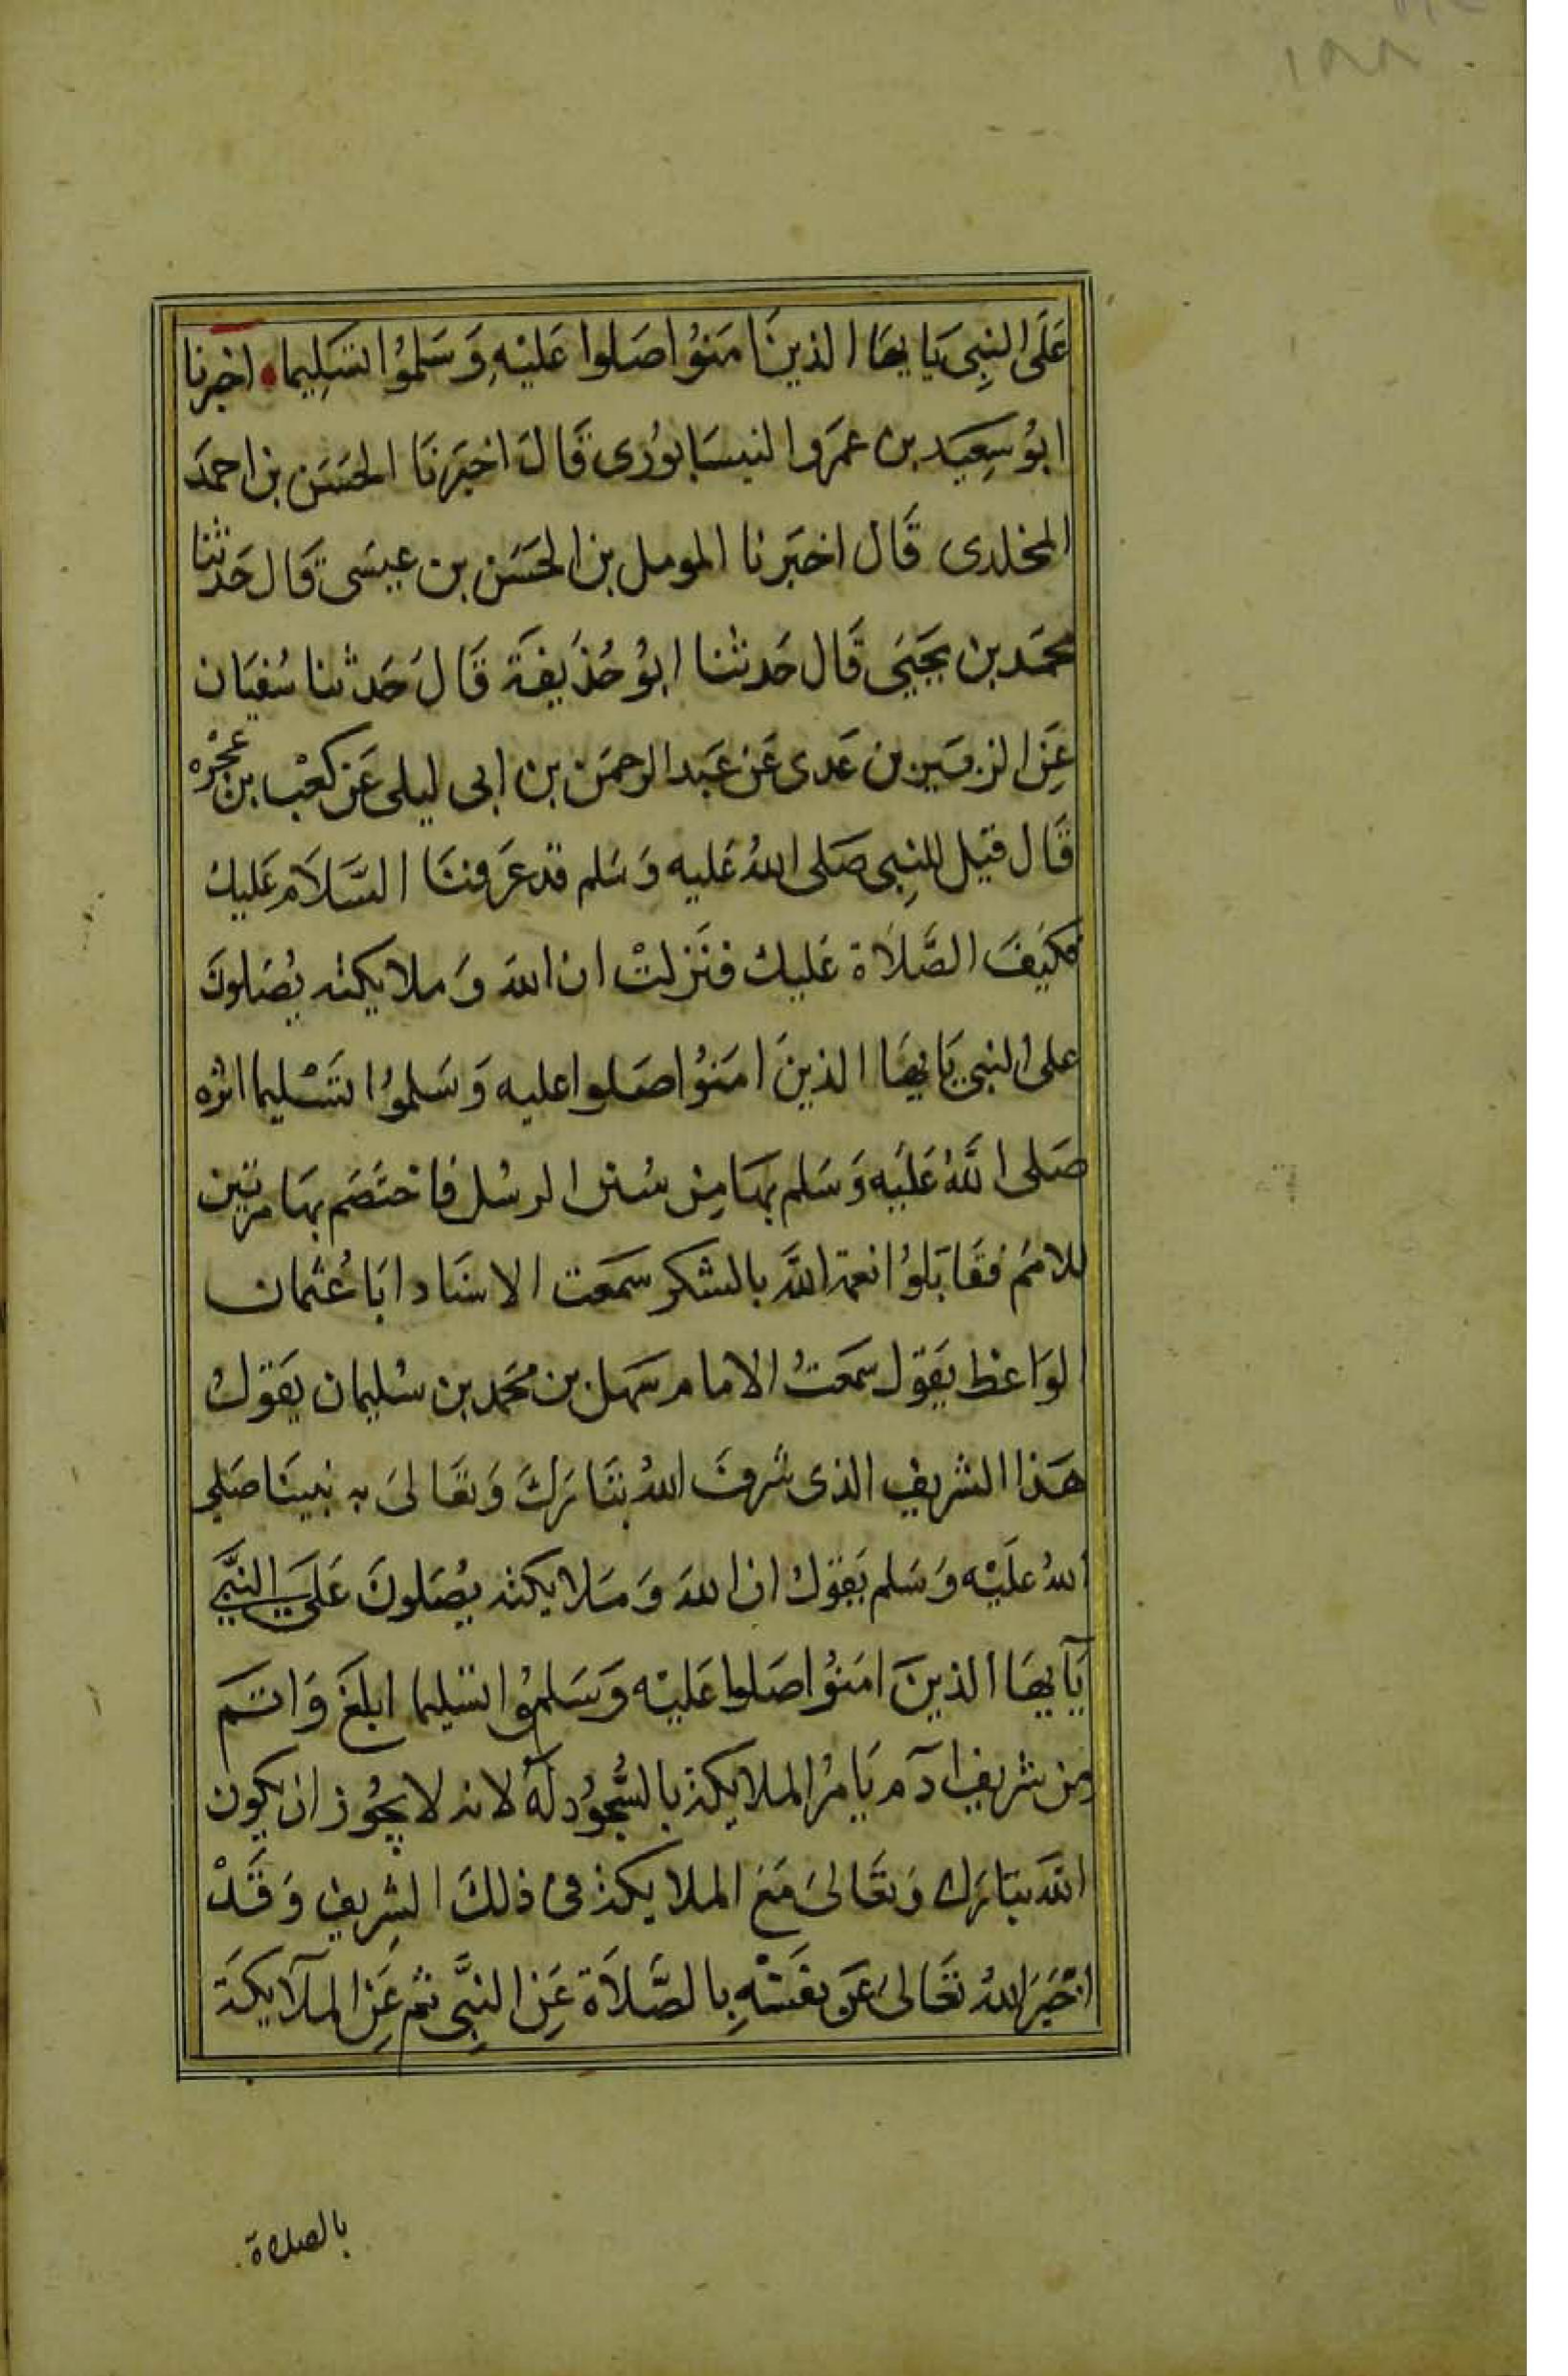 ١٨٨
عَلَى النبِى يَا يهَا الذينَ امَنوُا صَلوا عَليْهِ وَسَلموُا تسَلِيما اخبرنا
ابوُ سعِيَد بن عمَروا لنيسَابورُى قَالَ اخبَرنَا الحسَن بن احمدَ
المخلدى قَال اخبَرنا المومل بن الحسَن بن عيسَى قَال حَدثنا
محمَد بن يحيَى قَال حَدثنا ابوُ حُذيفَة قَالَ حَدثنا سُفيَان
عَن الزبَير بن عَدى عَن عَبد الرحمَن بن ابى ليلى عَن كعْب بن عجْره
قَال قيَل للنبِى صَلى اللهُ عَليه وَسَلم قد عرَفنَا السَّلاَم عَليك
فكيَفَ الصَّلاَة عَليك فنَزلتْ ان اللهَ وَملايكته يصُلوَنَ
على النبى يَا يهَا الذينَ امَنوُا صَلوا عليه وَسَلموُا تسَْليما اثره
صَلى اللَّهُ عَليَه وَسَلم بهَا مِن سُنن الرسُل فاختصَم بهَا مرتين
للامَم فقَابَلوُا نعمَة اللَّه بالشكر سمَعت الاستاد ابَا عُثمان
الوَاعظ يقَول سمَعتُ الامام سَهل بن محَمد بن سُليمان يقَولُ
هَذا التشريف الذى شرفَ اللهُ تبَارَكَ وَتعَالىَ به نبينَا صَلى
اللهُ عَليْه وَسَلم بقَولهُ ان اللهَ وَمَلايكته يصُلونَ عَلىَ النبَّى
يَآ يهَا الذينَ امَنوُا صَلوا عَليْه وَسَلموُا تسَليما ابلغَ وَاتمَ
مِن تشريف ادَم يَامرُ الملايكة بالسُّجوُد لَهُ لانه لا يجُوز ان يكون
اللهَ تبَارَك وَتعَالىَ مَعَ الملايكة فى ذلكَ التشِريف وَقَدْ
اخْبَرَ اللهُ تعَالىَ عَن نفَسْهِ بالصَّلاَة عَن النبِىَّ ثم عَن الملآيكَة
بالصلاة